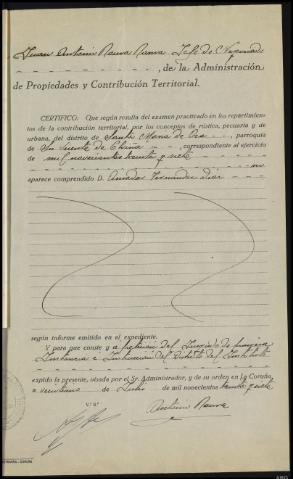 Juan Antonio Jefe de Negociado
, de la Administración
de Propiedades y Contribución Territorial.
CERTIFICO: Que según resulta del examen practicado en los repartimien-
tos de la contribución territorial, por los conceptos de rústica, pecuaria y de
urbana, del distrito de Santa María de , parroquia
de San Vicente de , correspondiente al ejercicio
de mil novecientos treinta y siete no
aparece comprendido D. Amador Fernández
según informe emitido en el expediente.
Y para que conste y a petición del Juzgado de primera
Instancia e Instrucción del Distrito del Instituto
expido la presente, visada por el Sr. Administrador, y de su orden en La Coruña
a veintiuno de Julio de mil novecientos treinta y siete
V.º B.º
Antonio